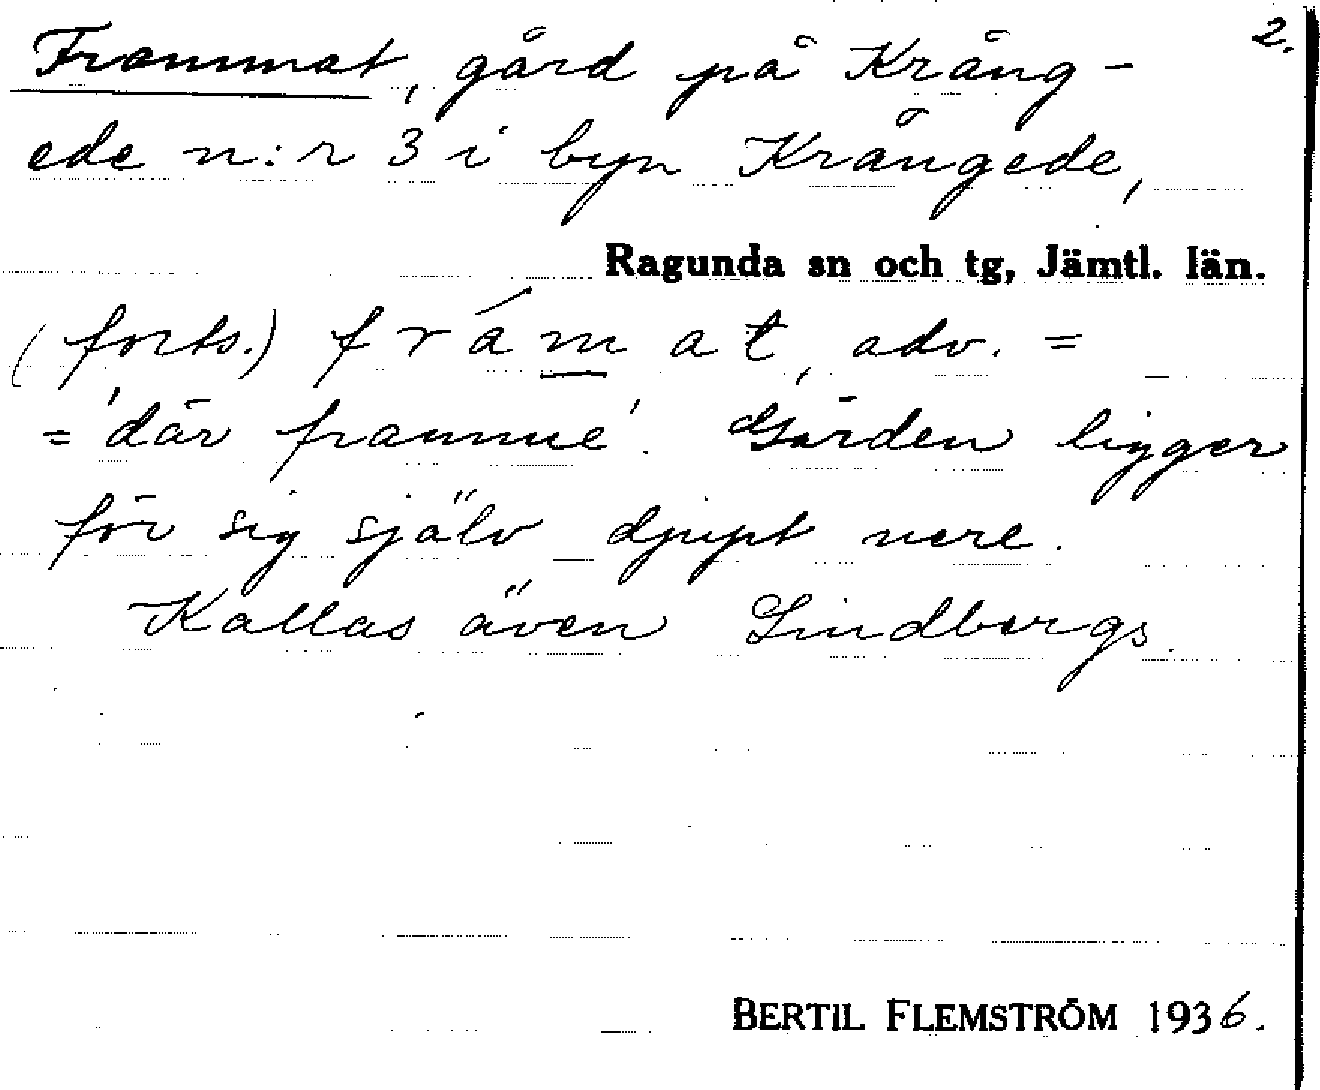 2.
Frammat, gård på Kràng-
ede n:r 3 i byn Krångede,
Ragunda sn och tg, Jämtl. län.
(forts.) frámat, adv. =
= 'där framme'. Gården ligger
för sig själv djupt nere.
Kallas även Lindbergs.
BERTIL FLEMSTRÖM 1936.